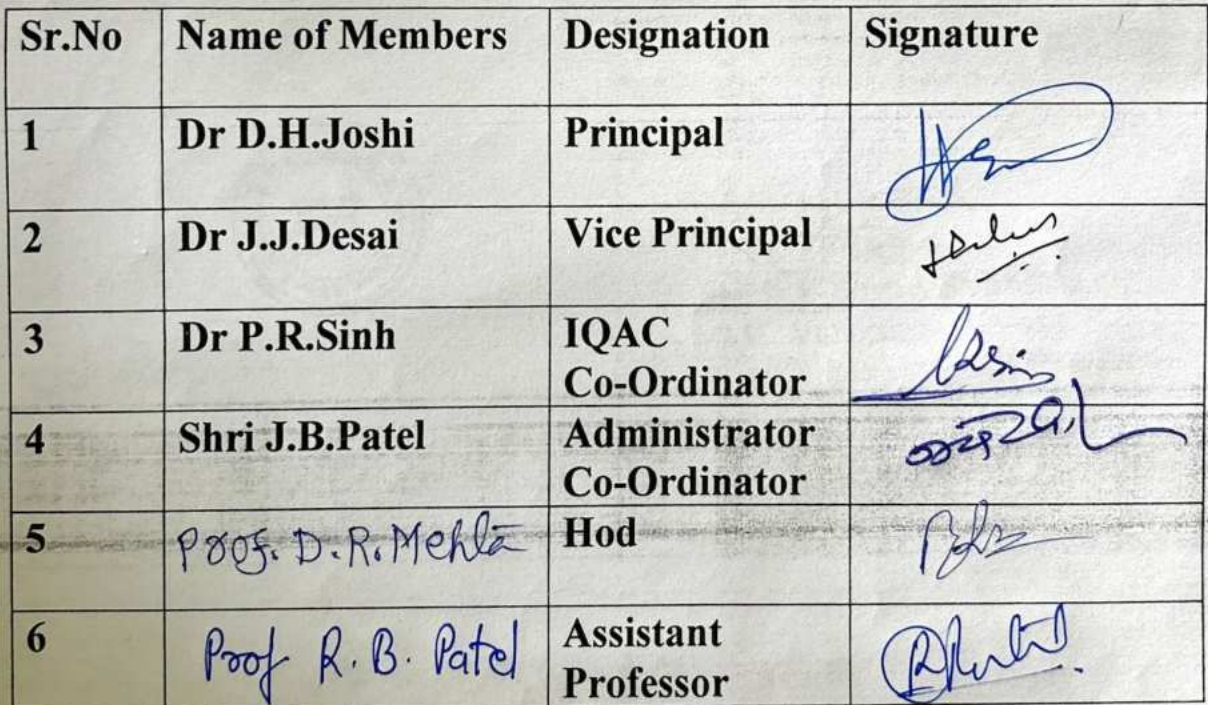 Sr.No Name of Members Designation Signature
1 Dr D.H.Joshi Principal
2 Dr J.J.Desai Vice Principal
3 Dr P.R.Sinh IQAC
Co-Ordinator
4 Shri J.B.Patel Administrator
Co-Ordinator
5 Prof. D.R.Mehta Hod
6 Prof R.B. Patel Assistant
Professor